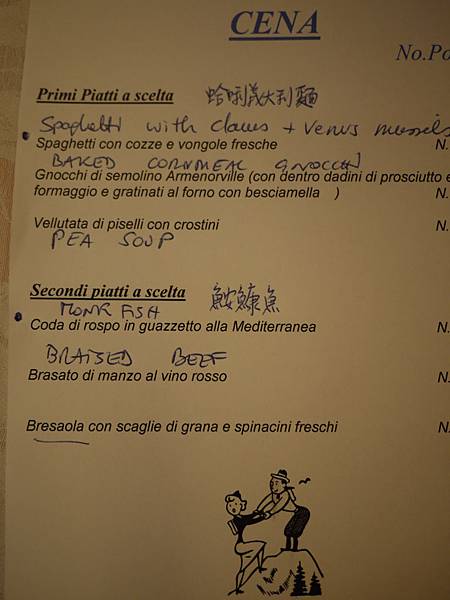 CENA
No.Po
Primi Piatti a scelta 蛤蜊義大利麵
Spaghetti with clams + Venus mussels
Spaghetti con cozze e vongole fresche N.
BAKED CORNMEAL GNOCCHI
Gnocchi di semolino Armenorville (con dentro dadini di prosciutto e
formaggio e gratinati al forno con besciamella ) N.
Vellutata di piselli con crostini N.
PEA SOUP
Secondi piatti a scelta 鮟鱇魚
MONK FISH
Coda di rospo in guazzetto alla Mediterranea N.
BRAISED BEEF
Brasato di manzo al vino rosso N.
Bresaola con scaglie di grana e spinacini freschi N.